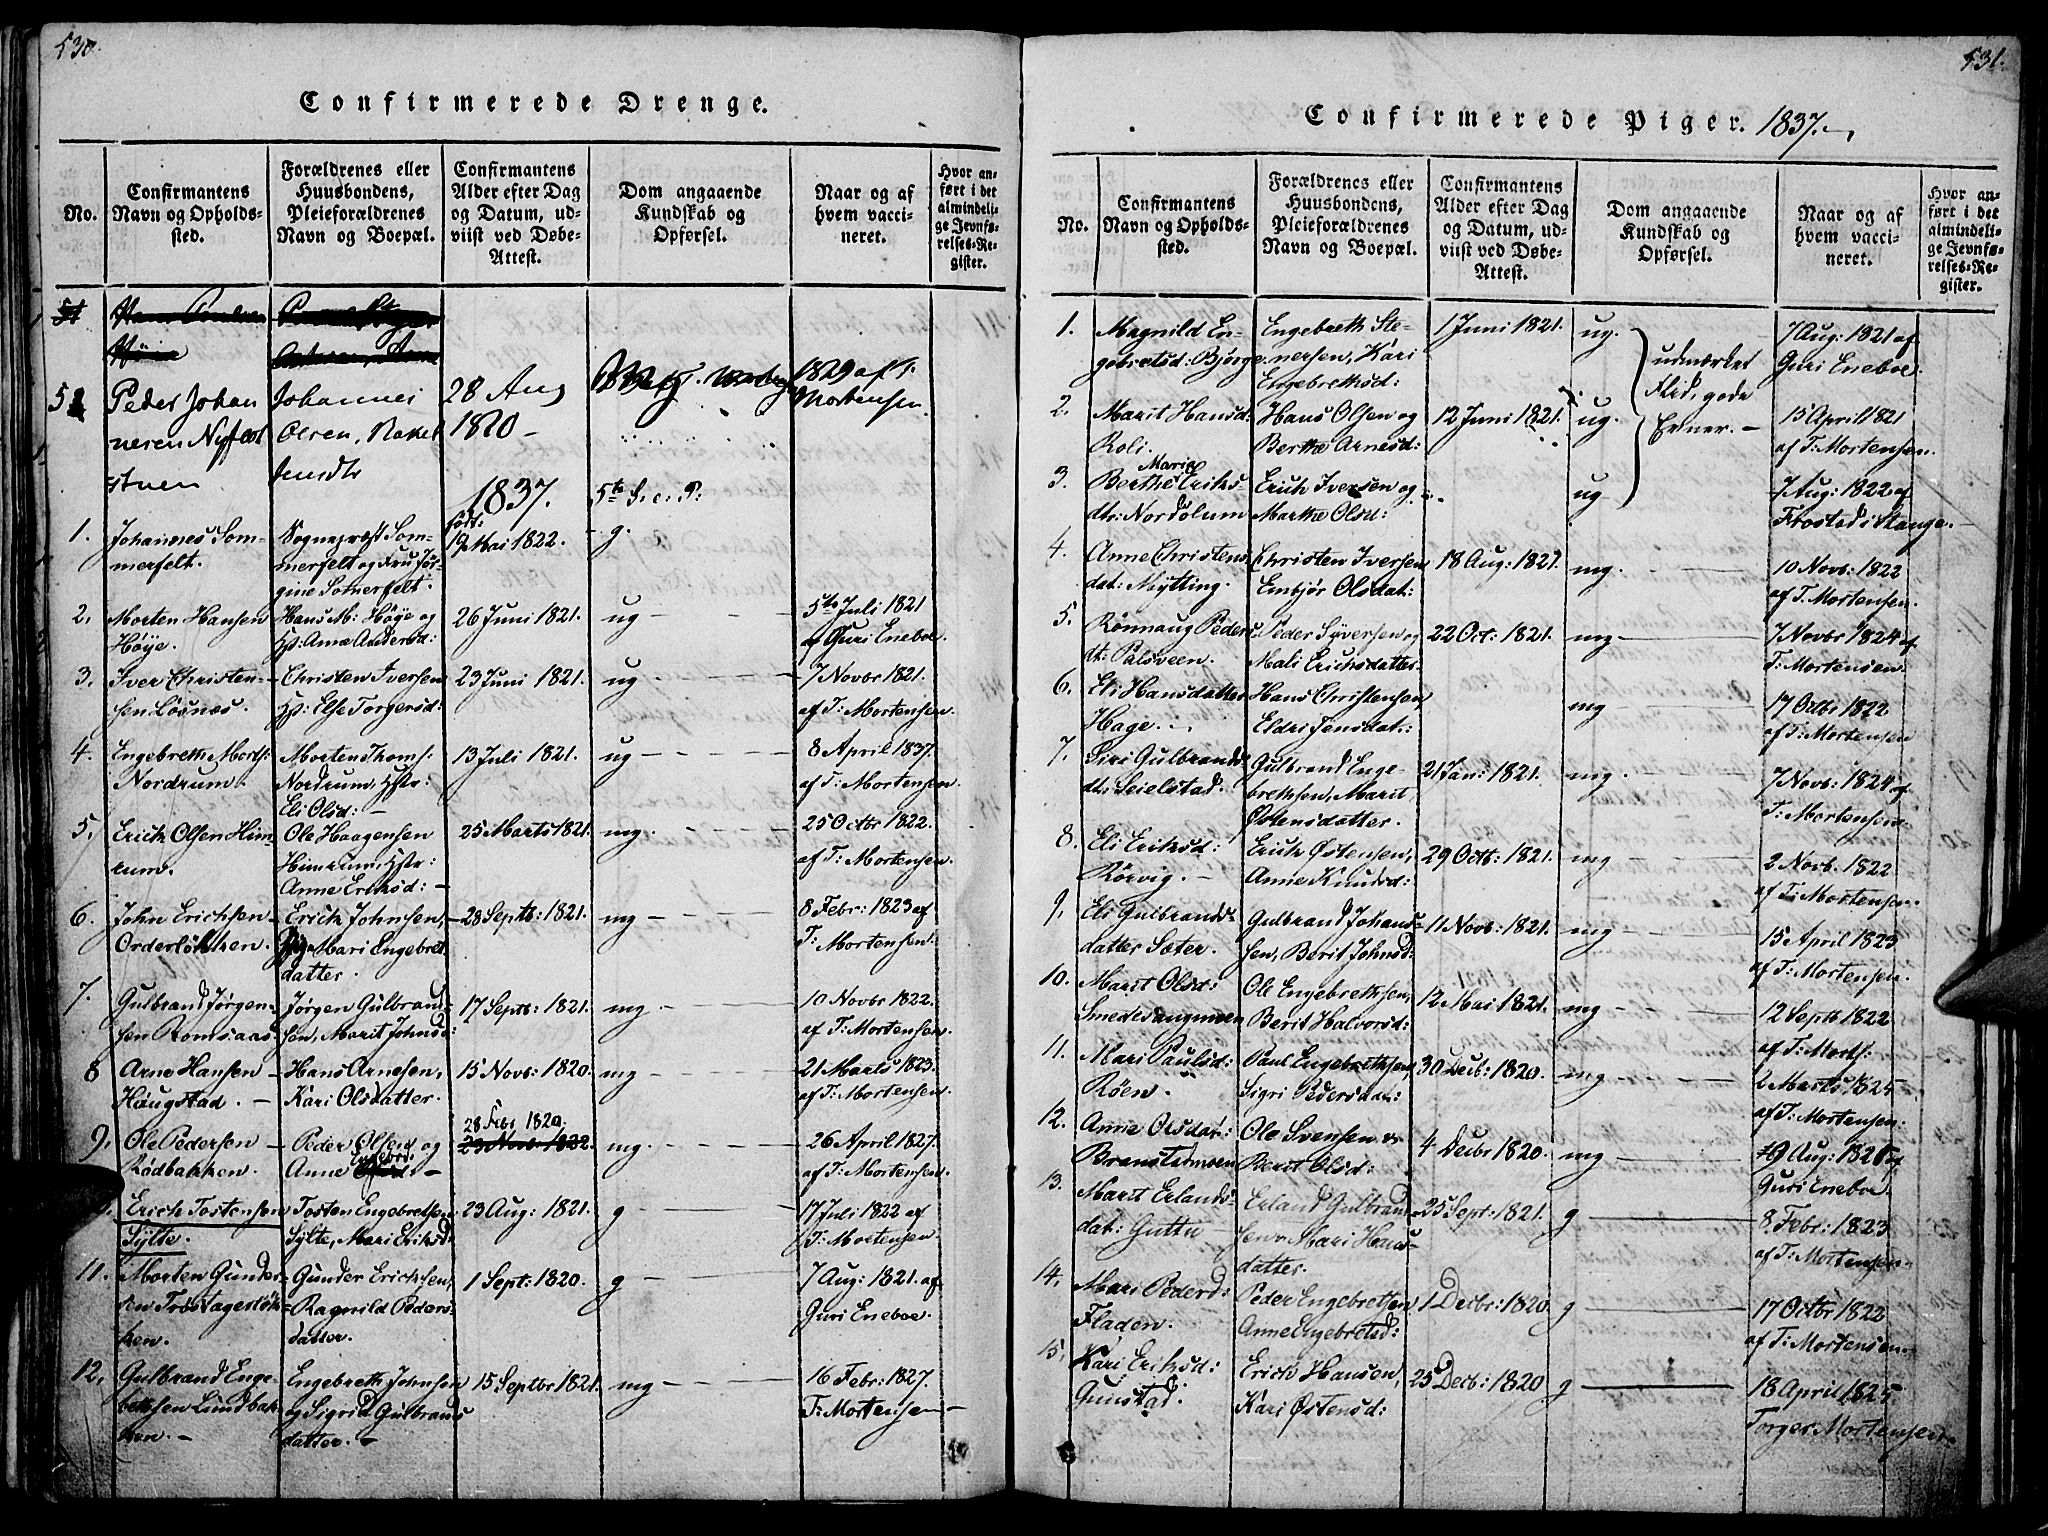 530.
Confirmerede Drenge.
No.
Confirmantens
Navn og Opholds-
sted.
Forældrenes eller
Huusbondens,
Pleieforældrenes
Navn og Boepæl.
Confirmantens
Alder efter Dag
og Datum, ud-
viist ved Døbe-
Attest.
Dom angaaende
Kundskab og
Opførsel.
Naar og af
hvem vacci-
neret.
Hvor an-
ført i det
almindeli-
ge Jevnfø-
relses-Re-
gister.
51
52
Peder Johan
nesen
Johannes
Olsen,
28 Aug
1820 -
1829 af T.
Mortensen
1837.
5te S. e. P:
1.
Johannes Som-
merfelt.
Sognepræst Som-
merfelt og Fru Jør-
gine Somerfelt.
født:
19 Mai 1822.
- g.
2.
Morten Hansen
Høÿe.
Hans M: Høÿe og
Hst: Anne Andersd:
26 Juni 1821.
ug - - - -
5te Juli 1821
af Guri Eneboe.
3.
Iver Christen-
sen Løsnæs.
Christen Iversen
Hst: Else Torgersd:
23 Juni 1821.
ug - - - -
7 Novbr 1821.
af T: Mortensen.
4.
Engebreth Morts:
Nordrum.
Morten Thoms:
Nordrum, Hstr:
Eli Olsd: -
13 Juli 1821.
ug - - - -
8 April 1837.
af T: Mortensen.
5.
Erich Olsen Him-
rum.
Ole Haagensen
Himrum, Hstr:
Anne Eriksd: -
25 Marts 1821.
mg. - - - -
25 Octbr 1822.
af T: Mortensen.
6.
John Erichsen -
Orderløkken.
Erich Johnsen,
Mari Engebret
datter.
28 Septb: 1821.
mg - - - -
8 Febr: 1823 af
T: Mortensen.
7.
Gulbrand Jørgen-
sen Romsaas
Jørgen Gulbrand-
sen, Marit Johnsd:
17 Septb: 1821.
mg - - - -
10 Novbr 1822.
af T: Mortensen.
8
Arne Hansen -
Haugstad. -
Hans Arnesen,
Kari Olsdatter.
15 Novb: 1820.
mg - - - -
21 Marts 1823.
af T: Mortensen.
9.
Ole Pedersen -
Rødbakken.
Peder Olsen og
Anne Engebrd: -
28 Febr 1820.
23 Novb: 1822.
mg. - - - -
26 April 1827.
af T: Mortensen
Erich Tostensen
Sÿlte.
Tosten Engebretsen
Sÿlte, Mari Eriksd:
23 Aug: 1821.
g - - - -
17 Juli 1822 af
T: Mortensen.
11.
Morten Gunder-
sen Trøstagerløk-
ken.
Gunder Erichsen,
Ragnild Peders-
datter.
1 Sept: 1820.
g - - - -
7 Aug: 1821. af
Guri Eneboe.
12.
Gulbrand Enge-
bretsen Lundbak-
ken. -
Engebreth Johnsen
og Sigrid Gulbrands
datter. -
15 Septbr 1821.
mg - - - -
16 Febr: 1827.
T: Mortensen -
531.
Confirmerede Piger. 1837.
No.
Confirmantens
Navn og Opholds-
sted.
Forældrenes eller
Huusbondens,
Pleieforældrenes
Navn og Boepæl.
Confirmantens
Alder efter Dag
og Datum, ud-
viist ved Døbe-
Attest.
Dom angaaende
Kundskab og
Opførsel.
Naar og af
hvem vacci-
neret.
Hvor an-
ført i det
almindeli-
ge Jevnfø-
relses-Re-
gister.
1.
Magnild En-
gebretsd: Bjørge.
Engebreth Ste-
nersen, Kari
Engebrethsd:
1 Juni 1821.
ug.
udmærket
Flid, gode
Evner. -
7 Aug: 1821 af
Guri Eneboe.
2.
Marit Hansd:
Roli.
Hans Olsen og
Berthe Arnesd:
12 Juni 1821.
ug.
15 April 1821
af T: Mortensen.
3.
Marie
Berthe Eriks-
dtr: Nordolum
Erich Iversen og
Marthe Olsd:
ug
7 Aug: 1822 af
Frostad i Stange.
4.
Anne Christens
dat: Mÿtting.
Christen Iversen
Embjør Olsdat:
18 Aug: 1821.
mg. - - -
10 Novb: 1822
af T. Mortensen.
5.
Rønnaug Peders
dt: Pålsveen.
Peder Sÿversen og
Mali Erichsdatter.
22 Oct: 1821.
mg - - -
7 Novbr 1824 af
T: Mortensen.
6.
Eli Hansdatter
Hage. -
Hans Christensen,
Eldri Jensdat:
mg - - -
17 Octbr 1822.
af T: Mortensen
7.
Siri Gulbrands
dt: Seielstad.
Gulbrand Enge-
brethsen, Marit
Østensdatter.
21 Jan: 1821.
mg. - - -
7 Novb: 1824 af
T: Mortensen.
8.
Eli Eriksd:
Rørvig. -
Erich Østensen,
Anne Knudsd:
29 Octb: 1821.
mg - - -
2 Novb: 1822
af T: Mortensen.
9.
Eli Gulbrands-
datter Sæter.
Gulbrand Johans-
sen, Berit Johnsd:
11 Novb: 1821.
mg - - -
15 April 1823
af T: Mortensen.
10.
Marit Olsd:
Smedesaugmoen
Ole Engebrethsen,
Berit Halvorsd:
12 Mai 1821.
mg - - -
12 Septb 1822
af T: Morts:
11.
Mari Paulsd:
Røen.
Paul Engebrethsen,
Sigri Pedersdat:
30 Decb: 1820.
mg - - -
2 Marts 1825
af T: Mortensen.
12.
Anne Olsdat:
Branstadmoen
Ole Svensen og
Berit Olsd:
4 Decbr 1820.
mg - - -
9 Aug: 1821 af
Guri Eneboe.
13.
Marit Erlands-
dat: Guttu
Erland Gulbrand-
sen, Mari Hans-
datter.
25 Sept: 1821.
g - - -
8 Febr: 1823
af T: Mortensen.
14.
Mari Pedersd:
Fladen.
Peder Engebretsen
Anne Engebretsd:
1 Decbr: 1820.
g - - -
17 Octbr 1822
af T: Mortensen.
15.
Kari Eriksd:
Gunstad.
Erich Hansen,
Kari Østensd:
25 Decb: 1820.
g - - -
18 April 1825.
Torger Mortensen.